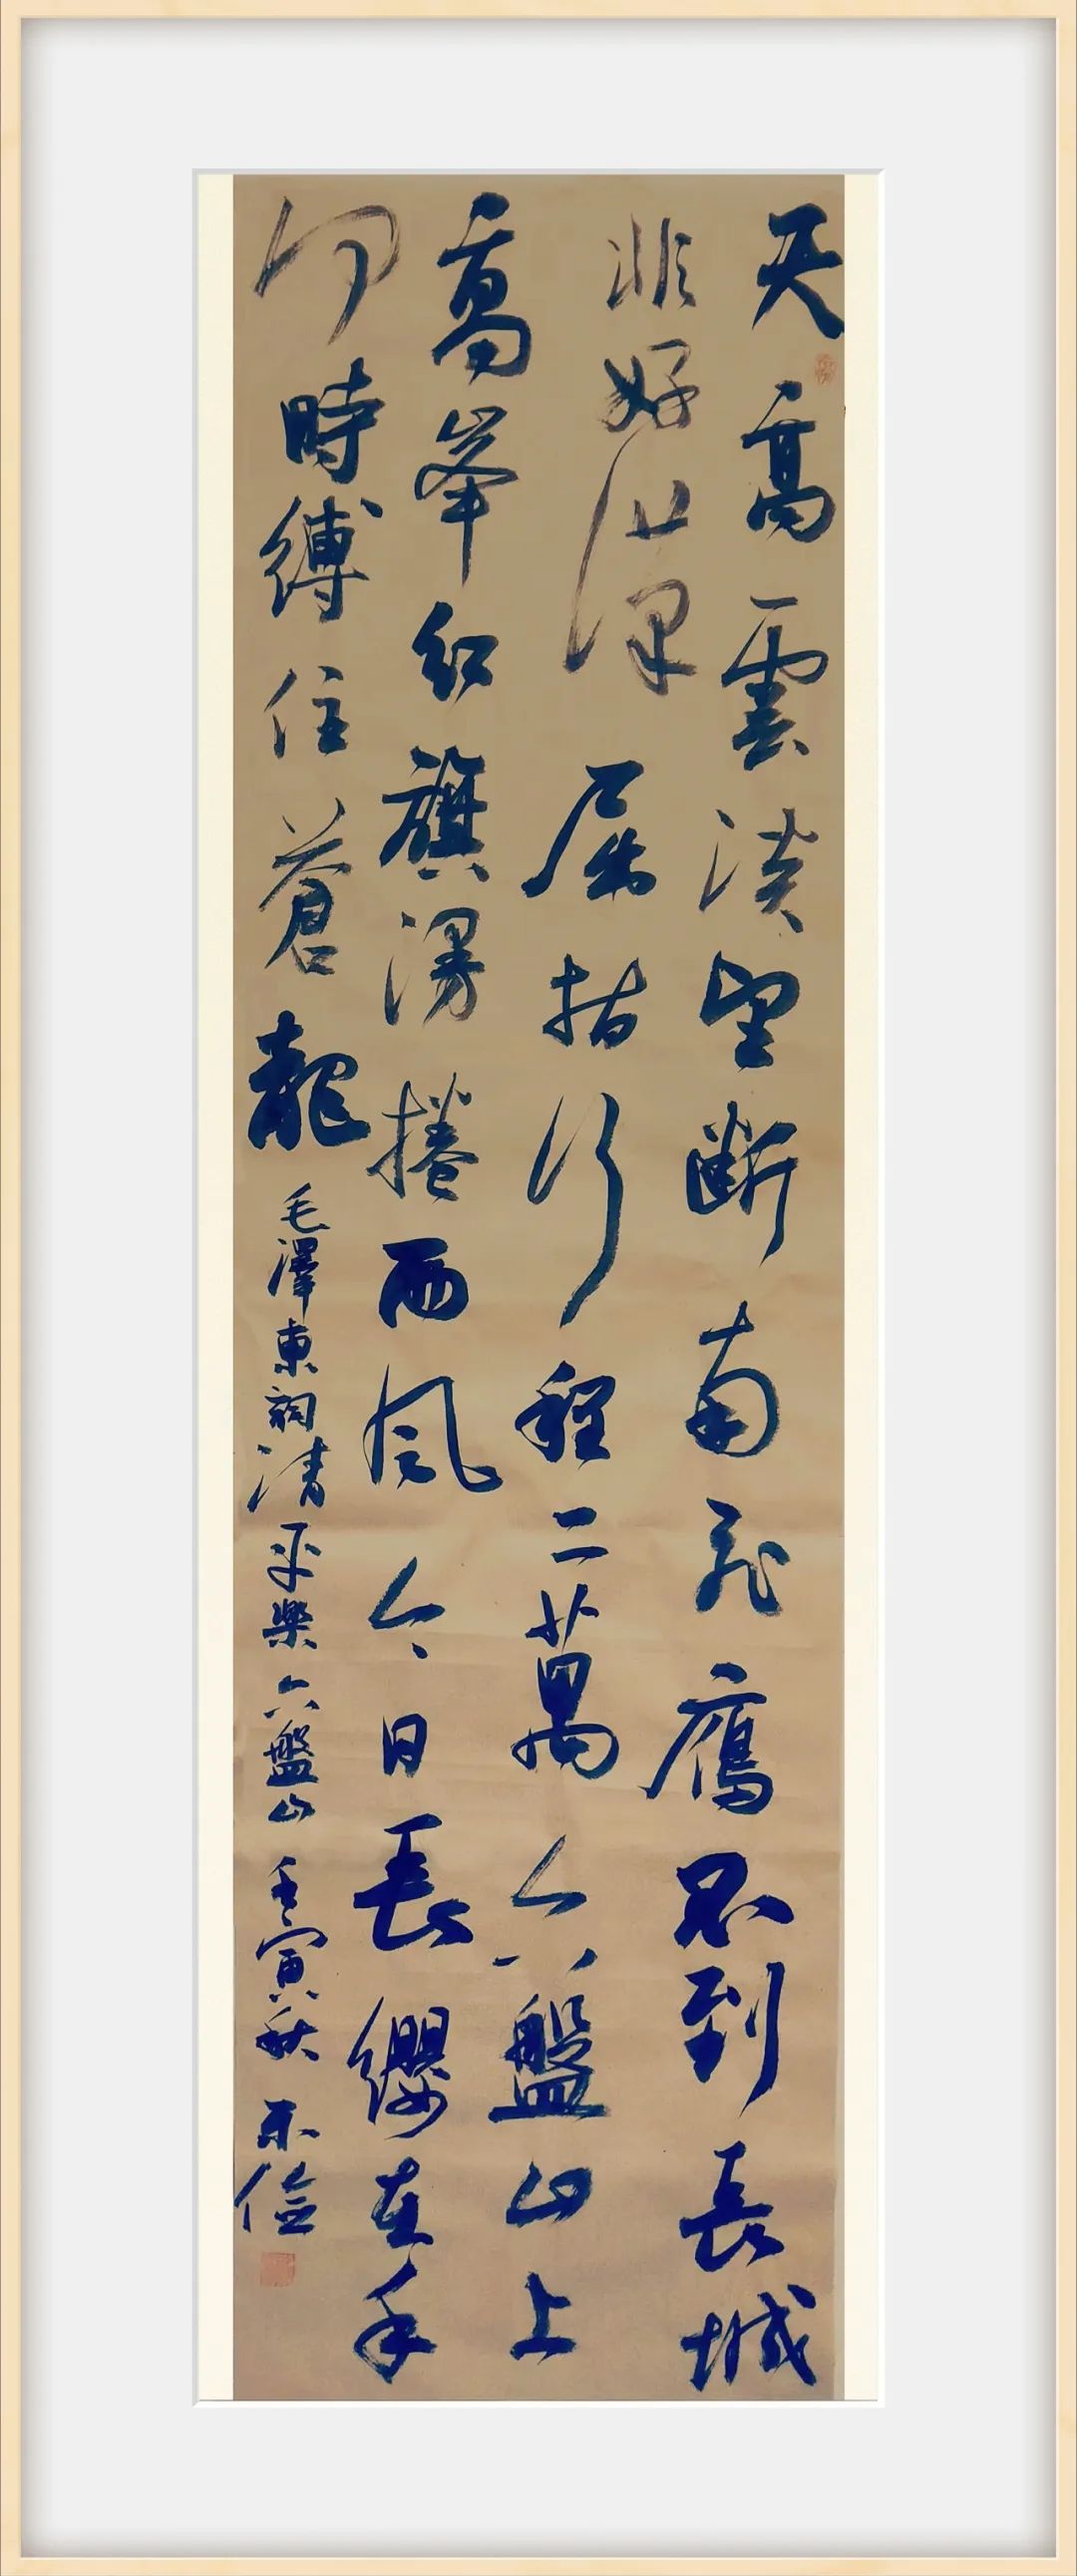 天高雲淡望断南飛鷹不到長城
非好漢屈指行程二萬六盤山上
高峯红旗漫捲西风今日長纓在手
何時缚住蒼龍
毛澤東詞清平樂六盤山 壬寅秋 不儉